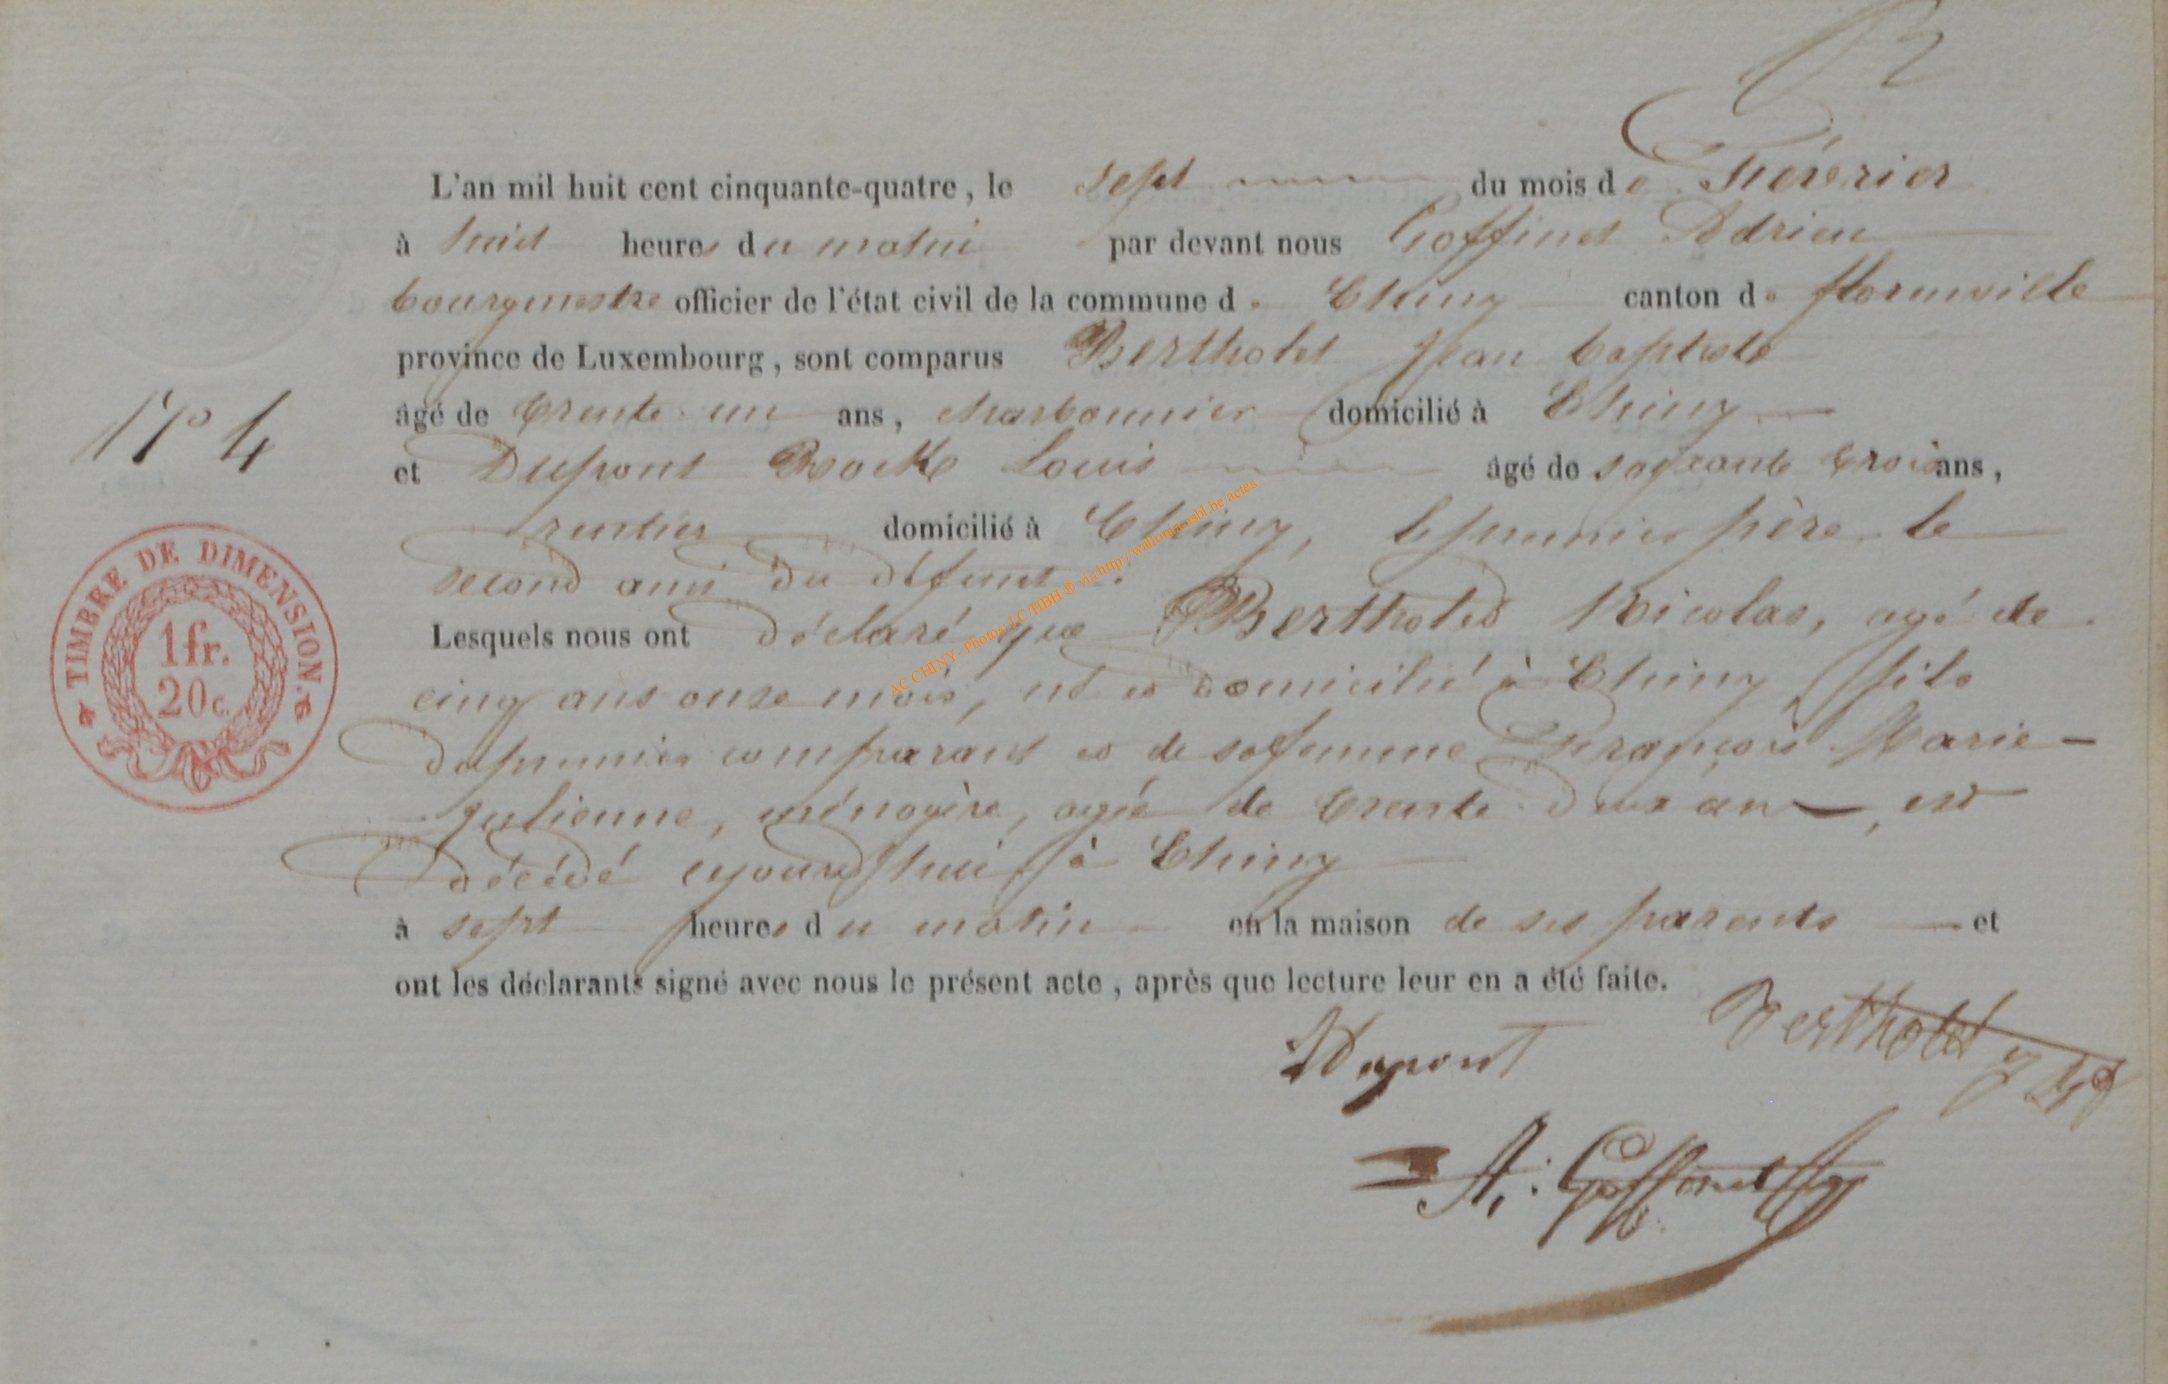 L'an mil huit cent cinquante-quatre, le sept du mois de Février
à huit heures du matin par devant nous Goffinet Adrien
bourgmestre officier de l'état civil de la commune d. Chiny canton de florenville
province de Luxembourg, sont comparus Bertholet Jean baptiste
âgé de trente un ans, charbonnier domicilié à Chiny
N° 4
et Dupont Rock Louis âgé de soixante trois ans,
rentier domicilié à Chiny, le premier père le
second ami du défunt.
Lesquels nous ont déclaré que Bertholet Nicolas, agé de
cinq ans onze mois, né et domicilié à Chiny, fils
du premier comparant et de sa femme François Marie-
Julienne, ménagère, agée de trente deux ans, est
décédé aujourd'hui à Chiny
à sept heures du matin en la maison de ses parents et
ont les déclarants signé avec nous le présent acte, après que lecture leur en a été faite.
TIMBRE DE DIMENSION.
1 fr.
20 c.
AC CHINY - Photos J.C/HBH ® via http://wallonia-asbl.be/actes
Dupont Bertholet
A: Goffinet